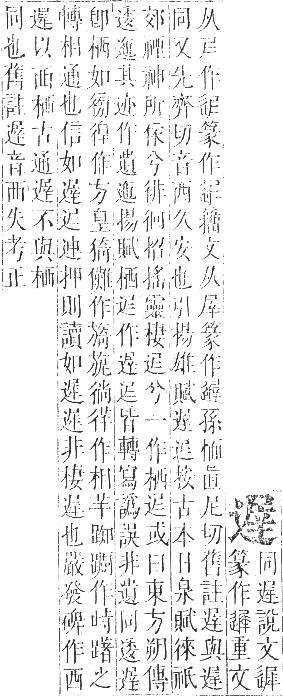 遟
同遲說文遲
篆作遲重文
从𡰥作𨒈篆作𨒈籒文从屖篆作遟孫愐直尼切舊註遟與遲
同又先齊切音西久安也引揚雄賦遟迡按古本甘泉賦徠祇
郊禋神所依兮徘徊招搖靈棲迡兮一作栖迡或曰東方朔傳
逶迤其迹作遺迤揚賦栖迡作遟迡皆轉寫譌誤非遺同逶遟
卽栖如彷徨作方皇猗儺作旖旎徜徉作相羊踟躕作峙躇之
轉相通也信如遟迡連押則讀如遲遲非棲遲也嚴發碑作西
遲以西栖古通遟不與栖
同也舊註遟音西失考正